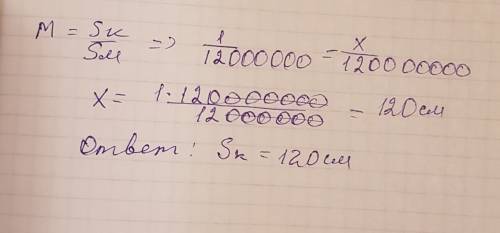 M = Sк/Sм => 1/12000000 = x/120 0000000
x = 1·120 0000000/12000000 = 120см
Ответ: Sк = 120см